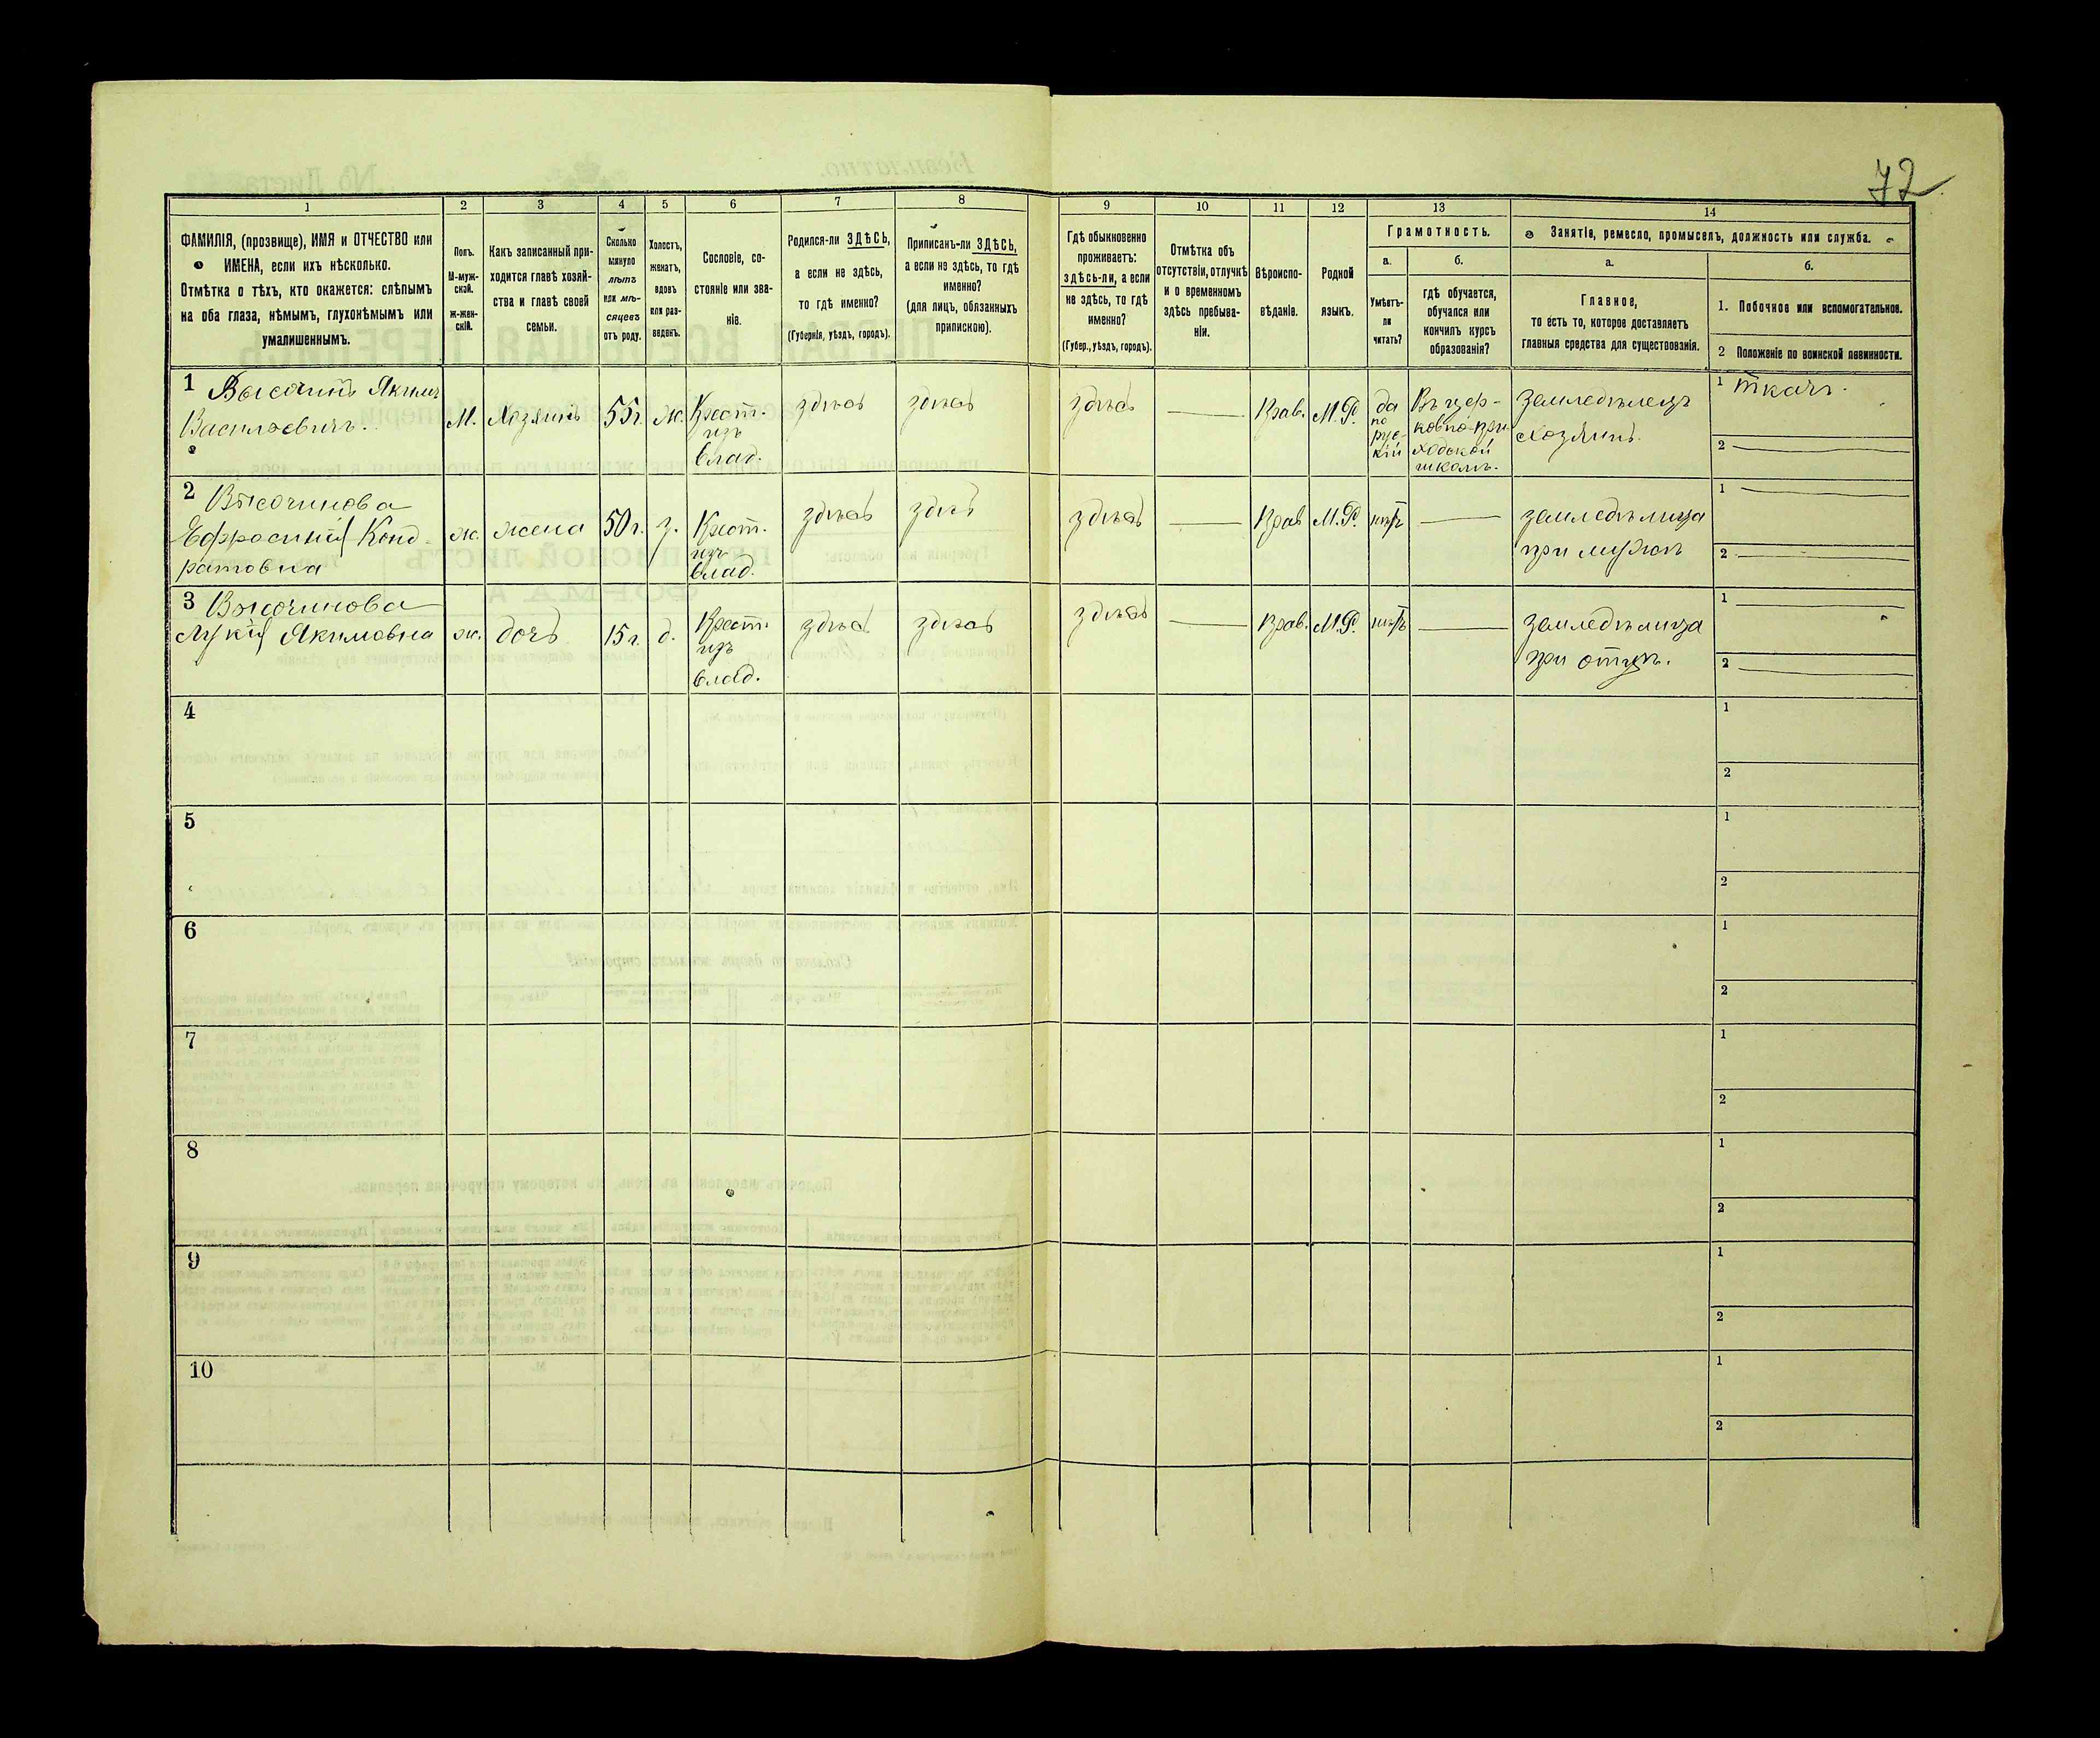 72
1
2
3
4
5
6
7
8
9
10
11
12
13
14
ФАМИЛІЯ, (прозвище), ИМЯ и ОТЧЕСТВО или
ИМЕНА, если ихъ нѣсколько.
Отмѣтка о тѣхъ, кто окажется: слѣпымъ
на оба глаза, нѣмымъ, глухонѣмымъ или
умалишеннымъ.
Полъ.
М-муж-
ской.
ж-жен-
скій.
Какъ записанный при-
ходится главѣ хозяй-
ства и главѣ своей
семьи.
Сколько
минуло
лѣтъ
или мѣ-
сяцевъ
отъ роду.
Холостъ,
женатъ,
вдовъ
или раз-
веденъ.
Сословіе, со-
стояніе или зва-
ніе.
Родился-ли ЗДѢСЬ,
а если не здѣсь,
то гдѣ именно?
(Губернія, уѣздъ, городъ).
Приписанъ-ли ЗДѢСЬ,
а если не здѣсь, то гдѣ
именно?
(для лицъ, обязанныхъ
припискою).
Гдѣ обыкновенно
проживаетъ:
здѣсь-ли, а если
не здѣсь, то гдѣ
именно?
(Губер., уѣздъ, городъ).
Отмѣтка объ
отсутствіи, отлучкѣ
и о временномъ
здѣсь пребыва-
ніи.
Вѣроиспо-
вѣданіе.
Родной
языкъ.
Грамотность.
а.
б.
Умѣетъ-
ли
читать?
гдѣ обучается,
обучался или
кончилъ курсъ
образованія?
Занятіе, ремесло, промыселъ, должность или служба.
а.
б.
Главное,
то есть то, которое доставляетъ
главныя средства для существованія.
1. Побочное или вспомогательное.
2 Положеніе по воинской повинности.
1 Высочинъ Якимъ
Васильевичъ.
М.
Хозяинъ
55 г.
ж.
Крест.
изъ
влад.
здѣсь
здѣсь
здѣсь
Прав.
М.Р.
да
по
рус-
кій
Въ цер-
ковно-при-
ходской
школѣ.
Земледѣлецъ
хозяинъ.
1 ткачъ.
2
2 Высочинова
Ефросинія Конд-
ратовна
ж.
жена
50 г.
з.
Крест.
изъ
влад.
здѣсь
здѣсь
здѣсь
Прав
М.Р.
нѣтъ
земледѣлица
при мужѣ
1
2
3 Высочинова
Лукія Якимовна
ж.
дочь
15 г.
д.
Крест.
изъ
влад.
здѣсь
здѣсь
здѣсь
Прав.
М.Р.
нѣтъ
земледѣлица
при отцѣ.
1
2
4
1
2
5
1
2
6
1
2
7
1
2
8
1
2
9
1
2
10
1
2